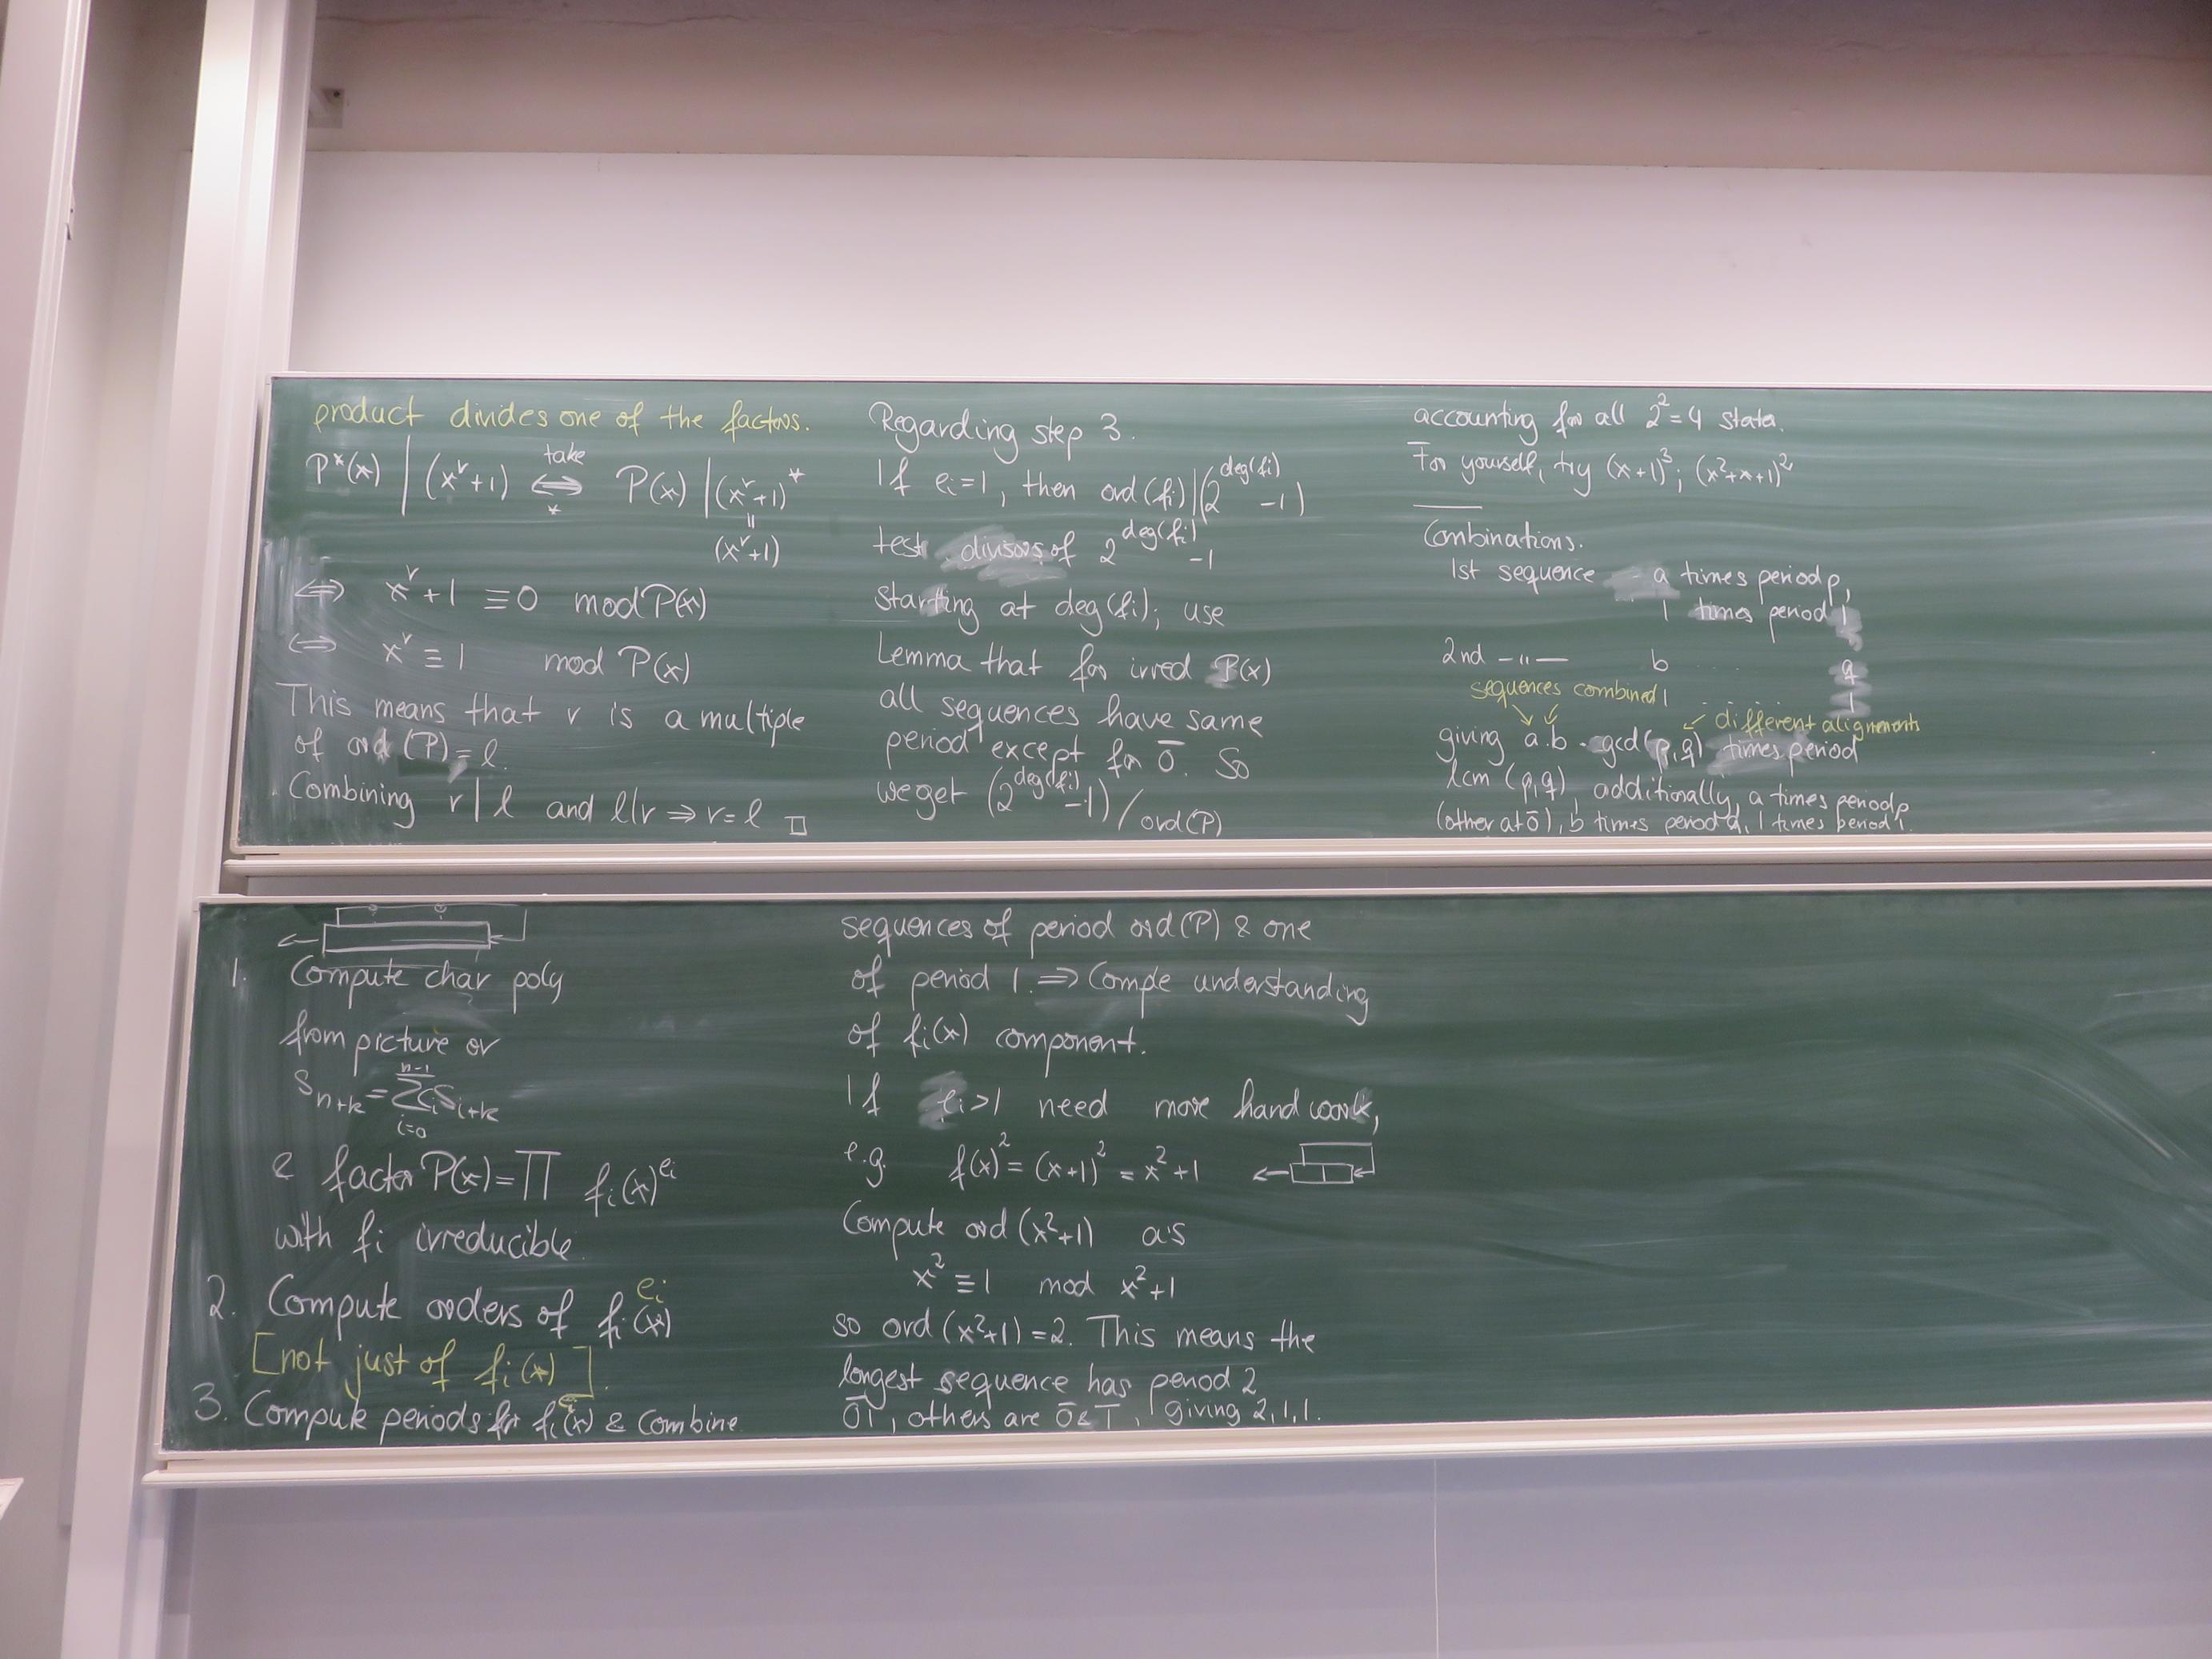 product divides one of the factors.
P*(x) | (x^r+1) take ⟺ * P(x) | (x^r+1)*
=
(x^r+1)
⟺ x^r+1 ≡ 0 mod P(x)
⟺ x^r ≡ 1 mod P(x)
This means that r is a multiple
of ord (P) = l.
Combining r | l and l | r ⇒ r = l □
Regarding step 3.
If ei=1, then ord(fi) | (2^deg(fi) -1)
test divisors of 2^deg(fi) -1
starting at deg(fi); use
Lemma that for irred P(x)
all sequences have same
period except for 0̅. So
we get (2^deg(fi) -1) / ord(P)
accounting for all 2^2 = 4 states.
For yourself, try (x+1)^3; (x^2+x+1)^2
Combinations.
1st sequence a times period p,
1 times period 1
2nd -"- b q
sequences combined 1 1
different alignments
giving a·b · gcd(p,q) times period
lcm (p,q), additionally, a times period p
(other at 0̅), b times period q, 1 times period 1.
1. Compute char poly
from picture or
s_n+k = Σ_{i=0}^{n-1} c_i s_i+k
& factor P(x) = ∏ fi(x)^ei
with fi irreducible.
2. Compute orders of fi(x)^ei
[not just of fi(x)].
3. Compute periods for fi(x)^ei & combine
sequences of period ord(P) & one
of period 1. ⇒ Comple understanding
of fi(x) component.
If ei>1 need more hand work,
e.g. f(x)^2 = (x+1)^2 = x^2+1
Compute ord (x^2+1) as
x^2 ≡ 1 mod x^2+1
so ord (x^2+1) = 2. This means the
longest sequence has period 2
0̅1̅, others are 0̅ & 1̅, giving 2,1,1.